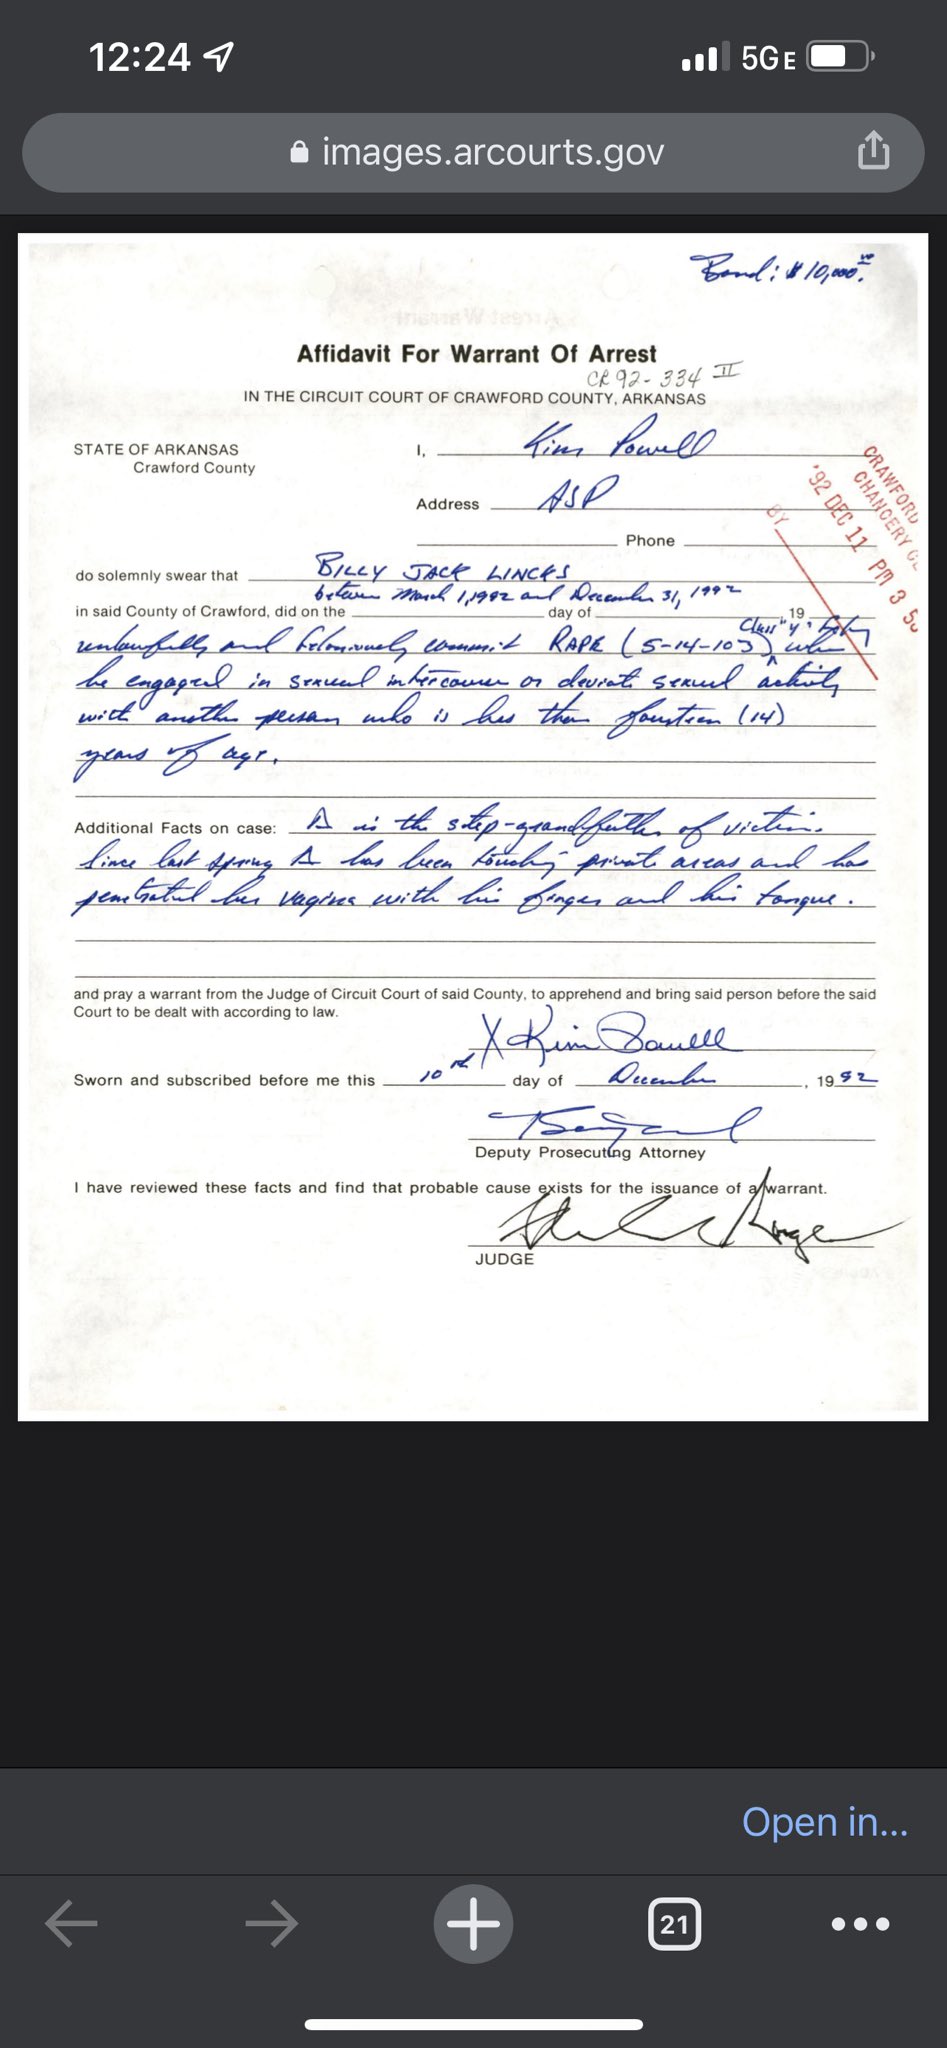 12:24
5GE
images.arcourts.gov
Bond: $10,000.00
Affidavit For Warrant Of Arrest
CR 92-334 II
IN THE CIRCUIT COURT OF CRAWFORD COUNTY, ARKANSAS
STATE OF ARKANSAS
Crawford County
I, Kim Powell
Address ASP
Phone
CRAWFORD
CHANCERY
'92 DEC 11 PM 3 5
BY
do solemnly swear that BILLY JACK LINCKS
between March 1, 1992 and December 31, 1992
in said County of Crawford, did on the day of 19
unlawfully and feloniously commit RAPE (5-14-103) Class "Y" felony when
he engaged in sexual intercourse or deviate sexual activity
with another person who is less than fourteen (14)
years of age.
Additional Facts on case: Δ is the step-grandfather of victim.
Since last spring Δ has been touching private areas and has
penetrated her vagina with his finger and his tongue.
and pray a warrant from the Judge of Circuit Court of said County, to apprehend and bring said person before the said
Court to be dealt with according to law.
X Kim Powell
Sworn and subscribed before me this 10th day of December, 1992
Deputy Prosecuting Attorney
I have reviewed these facts and find that probable cause exists for the issuance of a warrant.
JUDGE
Open in...
21